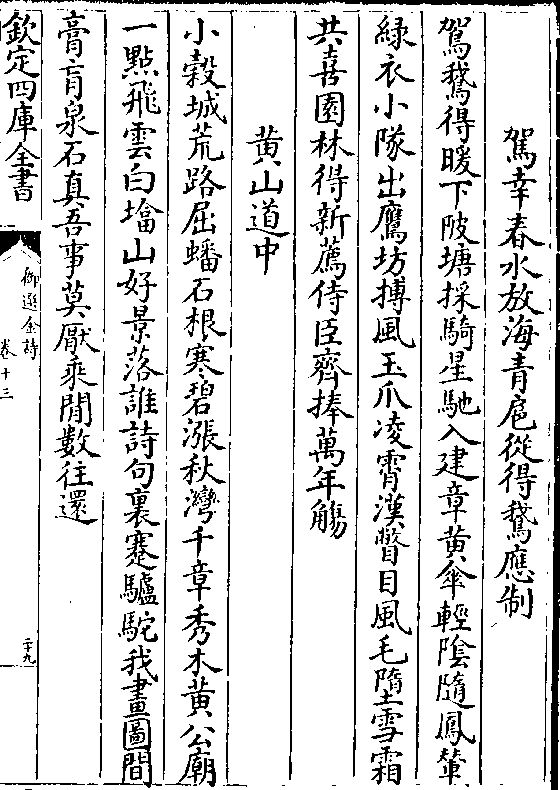 駕幸春水放海青扈從得鵞應制
駕鵞得暖下陂塘探騎星馳入建章黄傘輕陰隨鳳輦
緑衣小隊出鷹坊摶風玉爪凌霄漢瞥目風毛墮雪霜
共喜園林得新薦侍臣齊捧萬年觴
黄山道中
小榖城荒路屈蟠石根寒碧漲秋灣千章秀木黄公廟
一點飛雲白㙮山好景落誰詩句裏蹇驢駞我畫圖間
膏肓泉石真吾事莫厭乘閒數往還
欽定四庫全書
御選金詩
卷十三
二十九